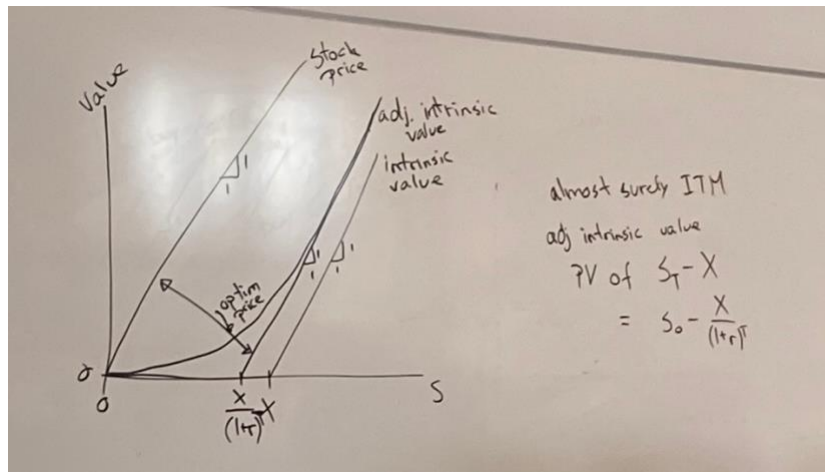 Value
Stock
price
adj. intrinsic
value
intrinsic
value
1
1
1
1
1
1
option
price
0
0
X/(1+r)^T
X
S
almost surely ITM
adj intrinsic value
PV of S_T - X
= S_0 - X/(1+r)^T